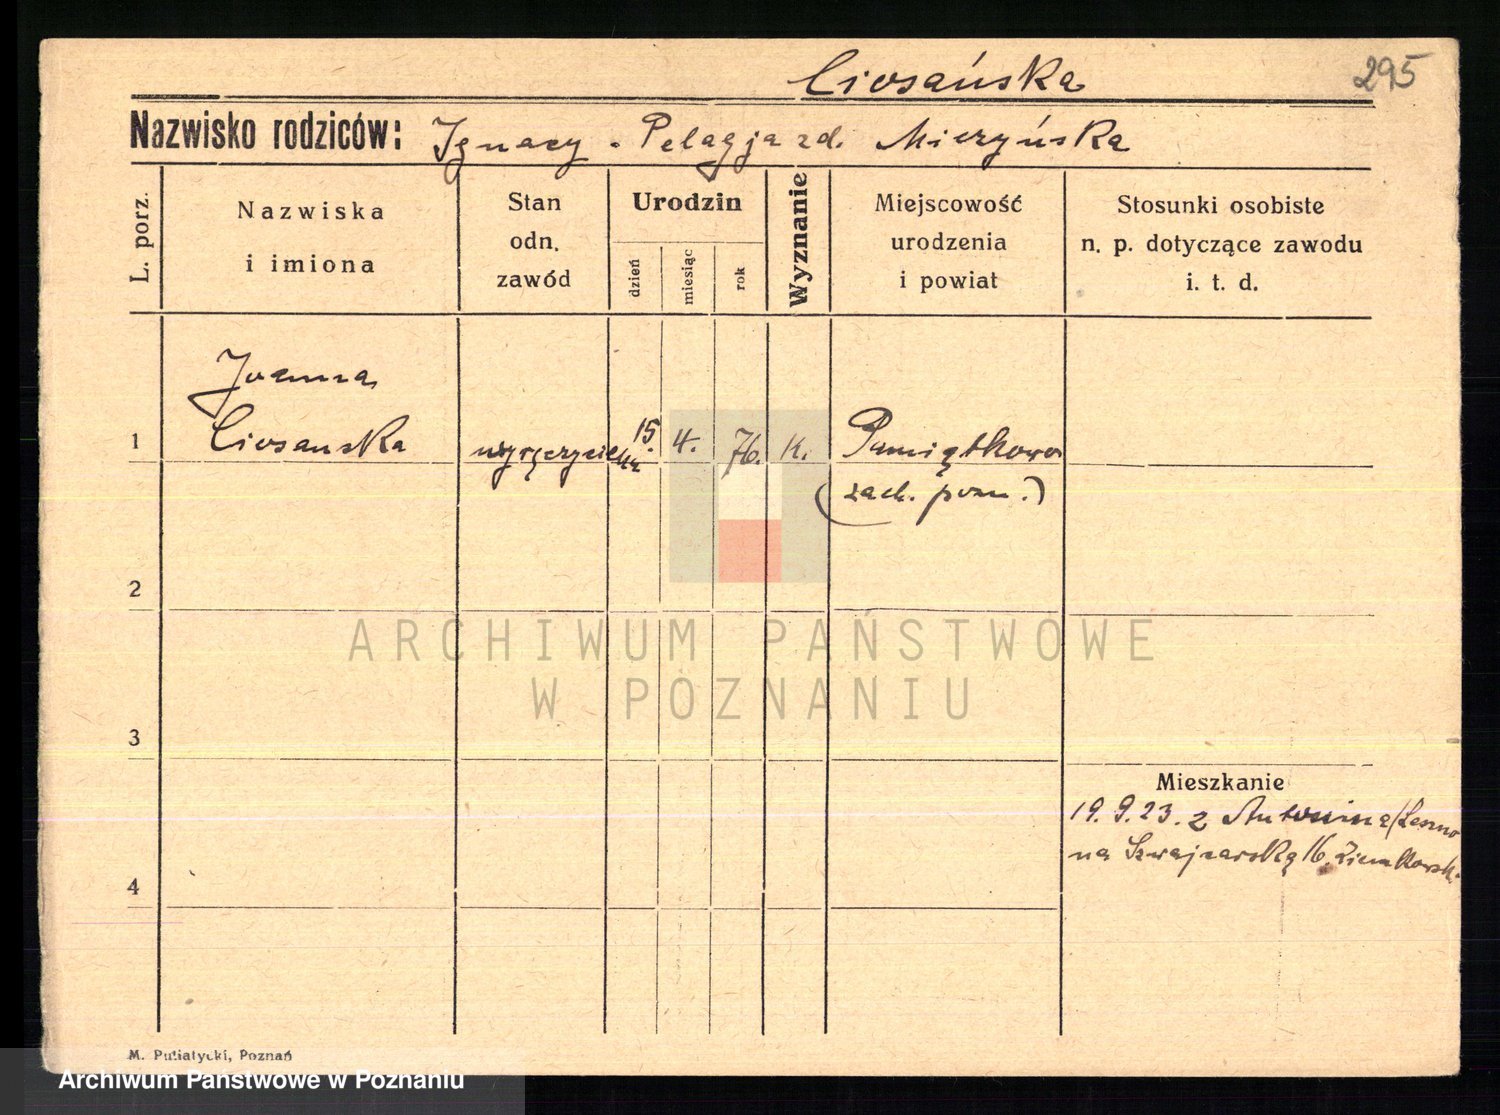 Ciosańska
295
Nazwisko rodziców: Ignacy - Pelagja zd. Mierzyńska
L. porz.
Nazwiska
i imiona
Stan
odn.
zawód
Urodzin
dzień
miesiąc
rok
Wyznanie
Miejscowość
urodzenia
i powiat
Stosunki osobiste
n. p. dotyczące zawodu
i. t. d.
Joanna
1 Ciosanska 15. 4. 76. K. Pamiątkowo
(zach. pozn.)
2
ARCHIWUM PAŃSTWOWE
W POZNANIU
3
Mieszkanie
19. 9. 23. z Antonina/Leszno
na Szwajcarską 16.
4
M. Putiatycki, Poznań
Archiwum Państwowe w Poznaniu